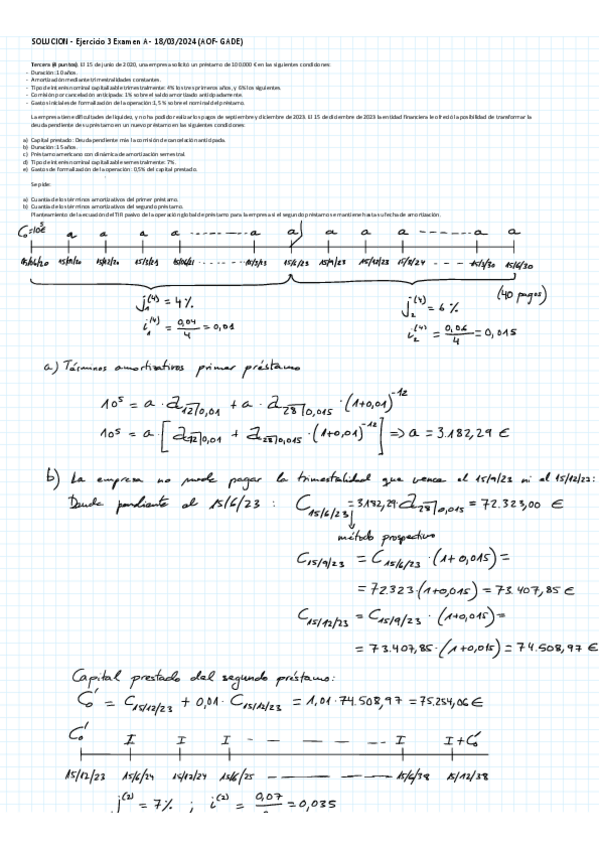 SOLUCION - Ejercicio 3 Examen A - 18/03/2024 (AOF- GADE)
Tercero (6 puntos). El 15 de junio de 2020, una empresa solicitó un préstamo de 100.000 € en las siguientes condiciones:
- Duración: 10 años.
- Amortización mediante trimestralidades constantes.
- Tipo de interés nominal capitalizable trimestralmente: 4% los tres primeros años, y 6% los siguientes.
- Comisión por cancelación anticipada: 1% sobre el saldo amortizado anticipadamente.
- Gastos iniciales de formalización de la operación: 1,5 % sobre el nominal del préstamo.
La empresa tiene dificultades de liquidez, y no ha podido realizar los pagos de septiembre y diciembre de 2023. El 15 de diciembre de 2023 la entidad financiera le ofreció la posibilidad de transformar la
deuda pendiente de su préstamo en un nuevo préstamo en las siguientes condiciones:
a) Capital prestado: Deuda pendiente más la comisión de cancelación anticipada.
b) Duración: 15 años.
c) Préstamo americano con dinámica de amortización semestral.
d) Tipo de interés nominal capitalizable semestralmente: 7%.
e) Gastos de formalización de la operación: 0,5% del capital prestado.
Se pide:
a) Cuantía de los términos amortizativos del primer préstamo.
b) Cuantía de los términos amortizativos del segundo préstamo.
Planteamiento de la ecuación del TIR pasivo de la operación global de préstamo para la empresa si el segundo préstamo se mantiene hasta su fecha de amortización.
C₀=10⁵ a a a a ------- a a a a a ------- a a
15/06/20 15/9/20 15/12/20 15/3/21 15/06/21 ------- 15/3/23 15/6/23 15/9/23 15/12/23 15/3/24 ---- 15/3/30 15/6/30
(40 pagos)
j₁⁽⁴⁾ = 4% j₂⁽⁴⁾ = 6%
i₁⁽⁴⁾ = 0,04/4 = 0,01 i₂⁽⁴⁾ = 0,06/4 = 0,015
a) Términos amortizativos primer préstamo
10⁵ = a · a12⌉0,01 + a · a28⌉0,015 · (1+0,01)⁻¹²
10⁵ = a · [a12⌉0,01 + a28⌉0,015 · (1+0,01)⁻¹²] => a = 3.182,29 €
b) La empresa no puede pagar la trimestralidad que vence el 15/9/23 ni el 15/12/23:
Deuda pendiente al 15/6/23 : C15/6/23 = 3182,29 a28⌉0,015 = 72.323,00 €
método prospectivo
C15/9/23 = C15/6/23 · (1+0,015) =
= 72.323·(1+0,015) = 73.407,85 €
C15/12/23 = C15/9/23 · (1+0,015) =
= 73.407,85·(1+0,015) = 74.508,97 €
Capital prestado del segundo préstamo:
C₀' = C15/12/23 + 0,01 · C15/12/23 = 1,01·74.508,97 = 75.254,06 €
C₀' I I I - - - - - -- I I+C₀'
15/12/23 15/6/24 15/12/24 15/6/25 ------- 15/6/38 15/12/38
j⁽²⁾ = 7% ; i⁽²⁾ = 0,07/ = 0,035